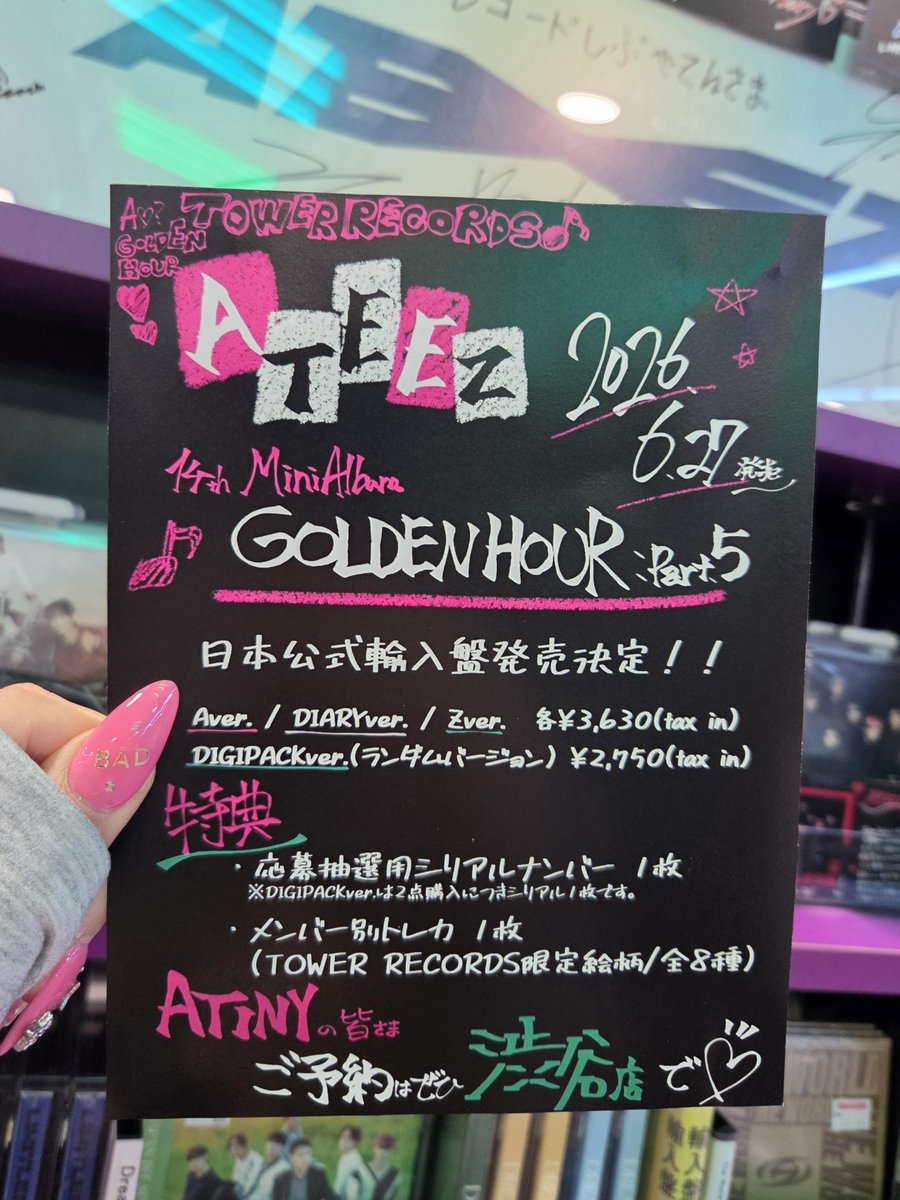 レコードしぶやてんさま
TOWER RECORDS
GOLDEN
HOUR
ATEEZ
2026.
6.27 発売
14th Mini Album
GOLDEN HOUR : Part.5
日本公式輸入盤発売決定！！
Aver. / DIARYver. / Zver. 各¥3,630(tax in)
DIGIPACKver.(ランダムバージョン) ¥2,750(tax in)
特典
・応募抽選用シリアルナンバー 1枚
※DIGIPACKver.は2点購入につきシリアル1枚です。
・メンバー別トレカ 1枚
(TOWER RECORDS限定絵柄/全8種)
ATINYの皆さま
ご予約はぜひ 渋谷店で
BAD
輸入盤